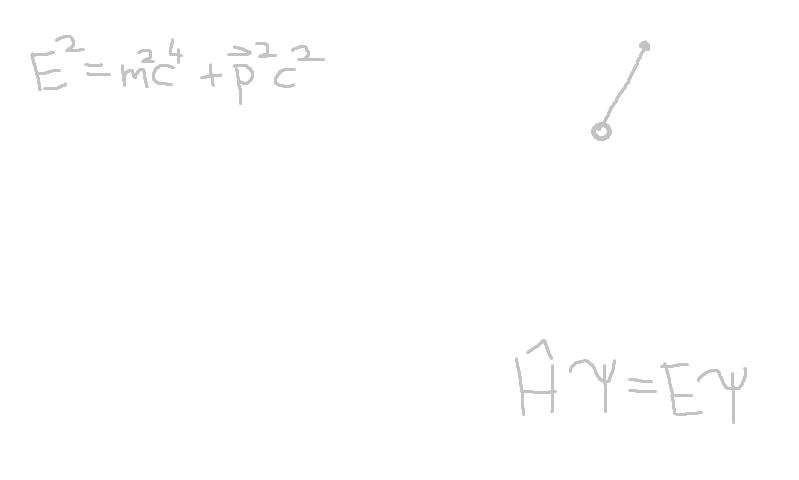 E² = m²c⁴ + p⃗²c²
Ĥψ = Eψ